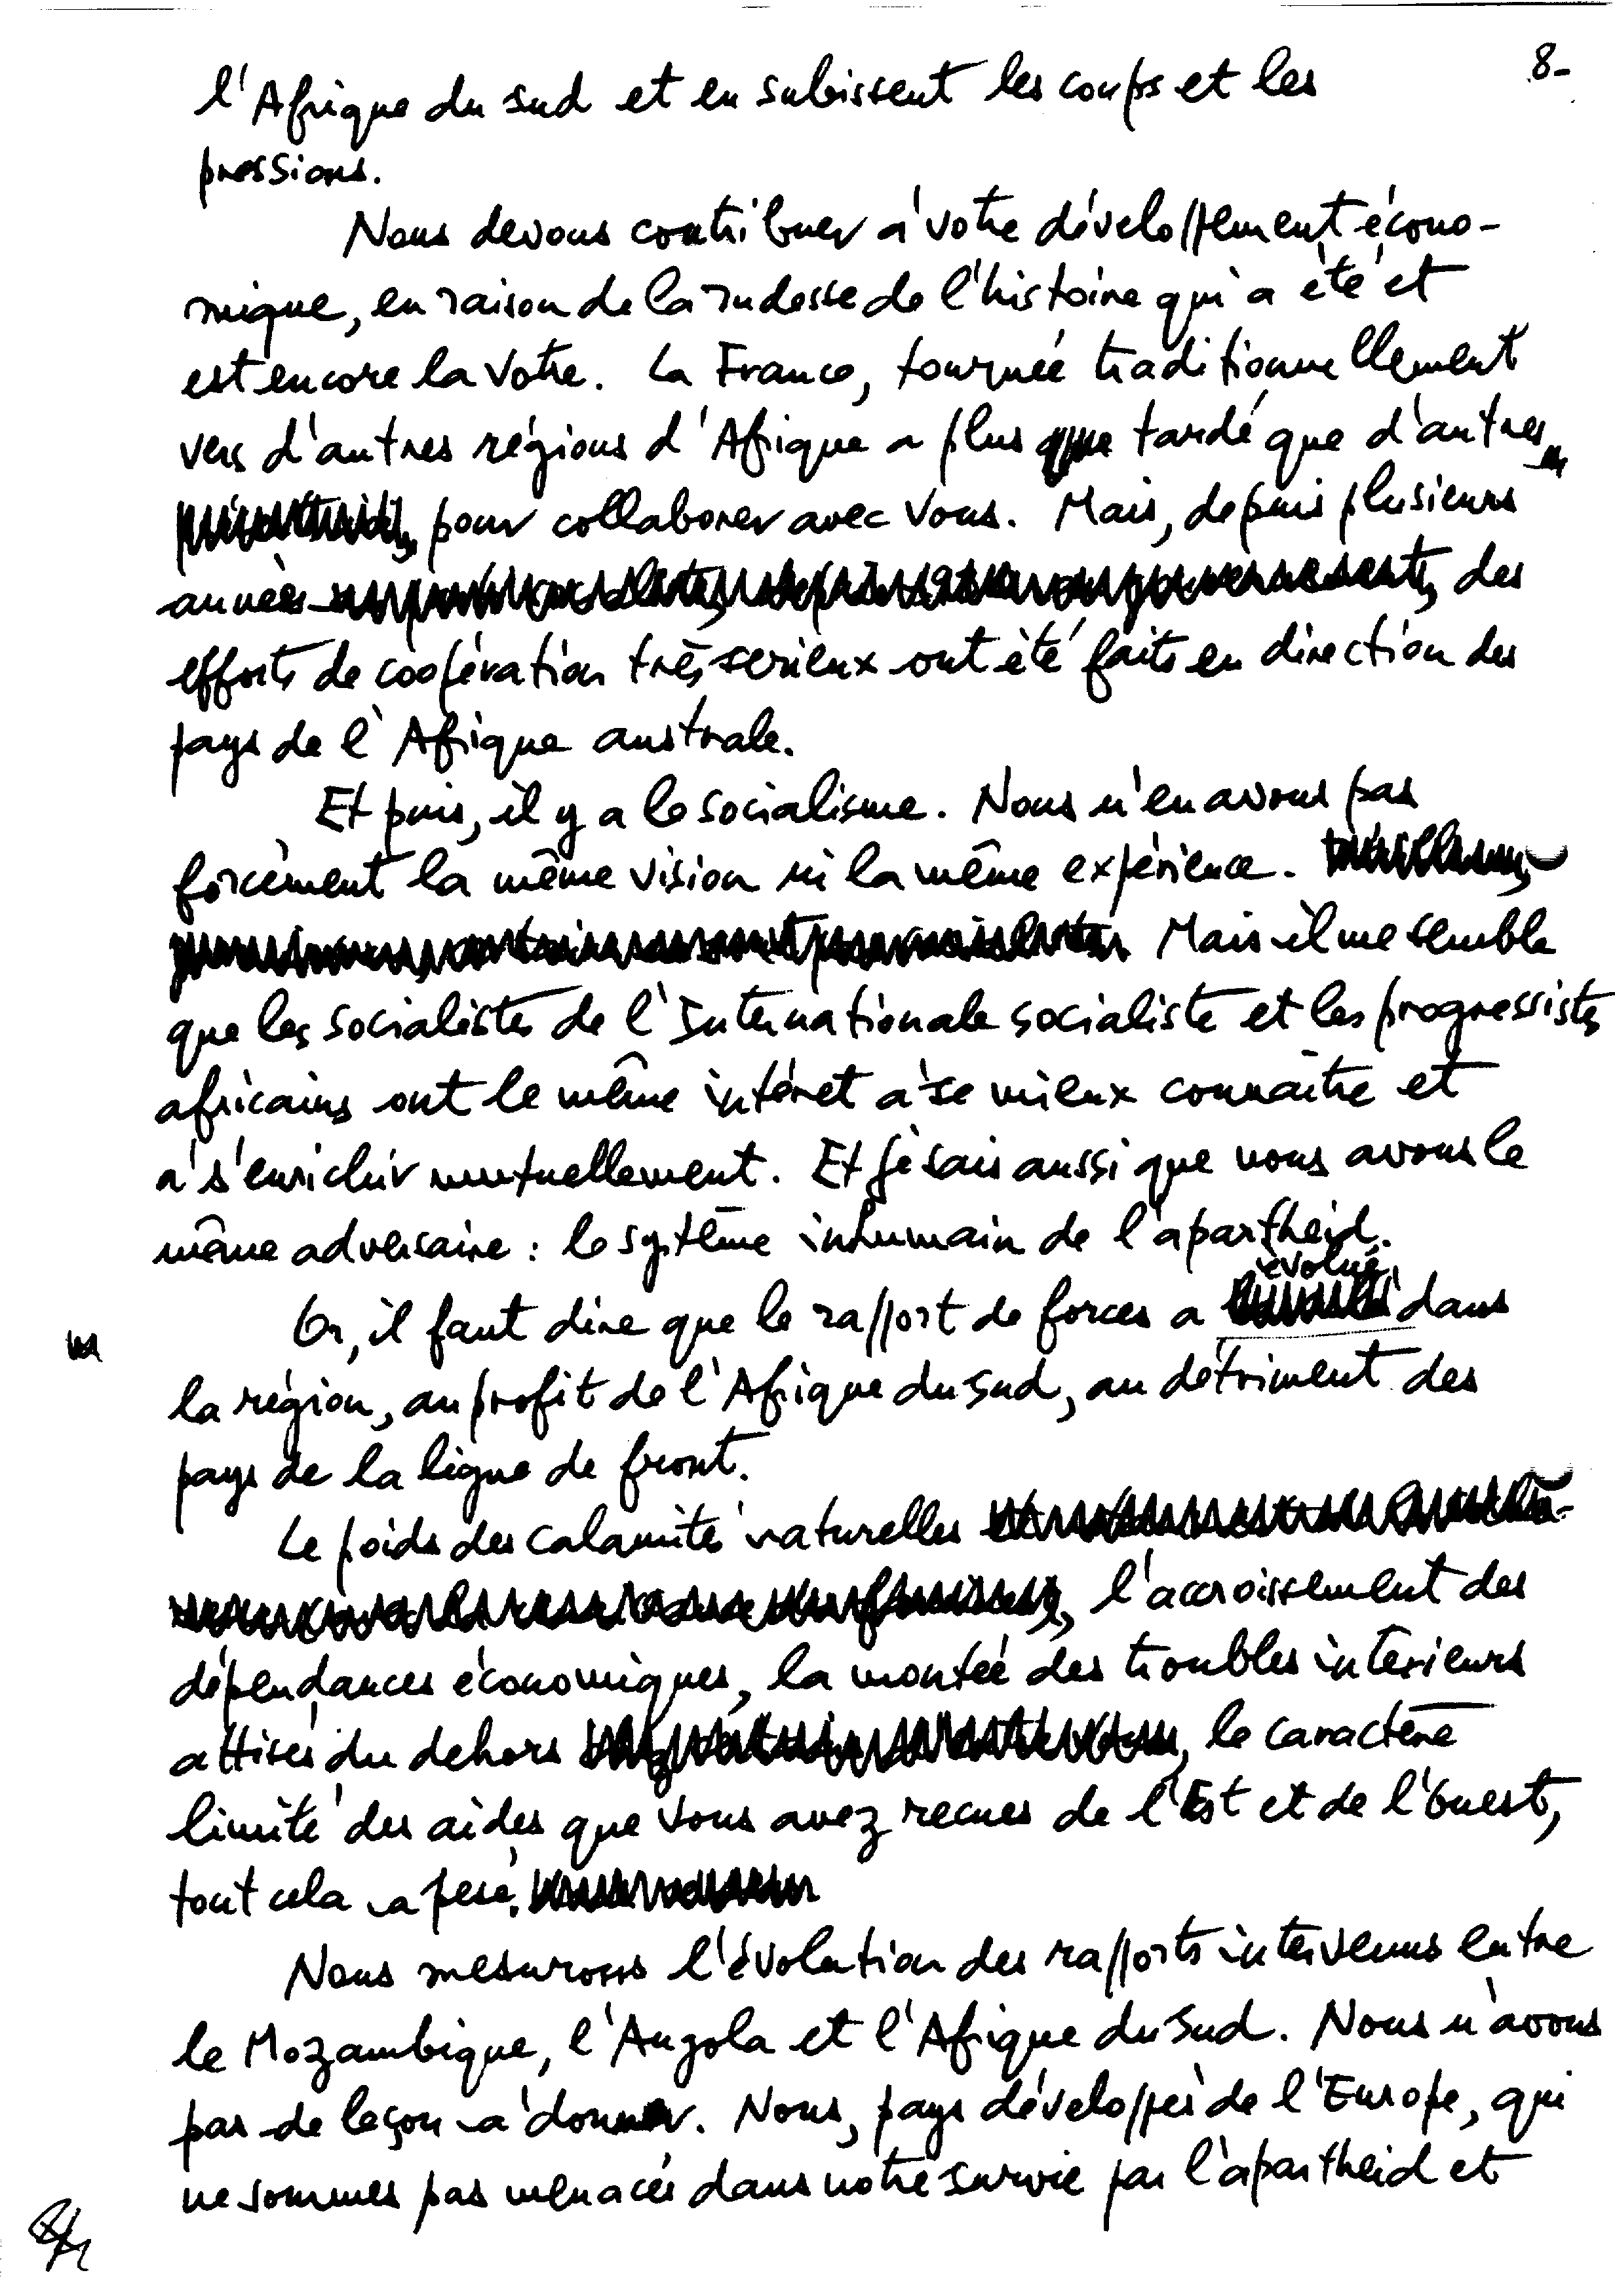 8-
l'Afrique du Sud et en subissent les coups et les
pressions.
Nous devons contribuer à votre développement écono-
mique, en raison de la rudesse de l'histoire qui a été et
est encore la votre. La France, tournée traditionnellement
vers d'autres régions d'Afrique a plus que tardé que d'autres
pour collaborer avec vous. Mais, depuis plusieurs
années des
efforts de coopération très serieux ont été faits en direction des
pays de l'Afrique australe.
Et puis, il y a le socialisme. Nous n'en avons pas
forcément la même vision ni la même expérience.
Mais il me semble
que les socialistes de l'Internationale socialiste et les progressistes
africains ont le même intéret à se mieux connaître et
à s'enrichir mutuellement. Et je sais aussi que nous avons le
même adversaire : le système inhumain de l'apartheid.
évolué,
Or, il faut dire que le rapport de forces a dans
la région, au profit de l'Afrique du Sud, au détriment des
pays de la ligne de front.
Le poids des calamités naturelles
, l'accroissement des
dépendances économiques, la montée des troubles interieurs
attisés du dehors , le caractère
limité des aides que vous avez recues de l'Est et de l'Ouest,
tout cela a pesé.
Nous mesurons l'évolution des rapports intervenus entre
le Mozambique, l'Angola et l'Afrique du Sud. Nous n'avons
pas de leçon à donner. Nous, pays développés de l'Europe, qui
ne sommes pas menacés dans notre survie par l'apartheid et